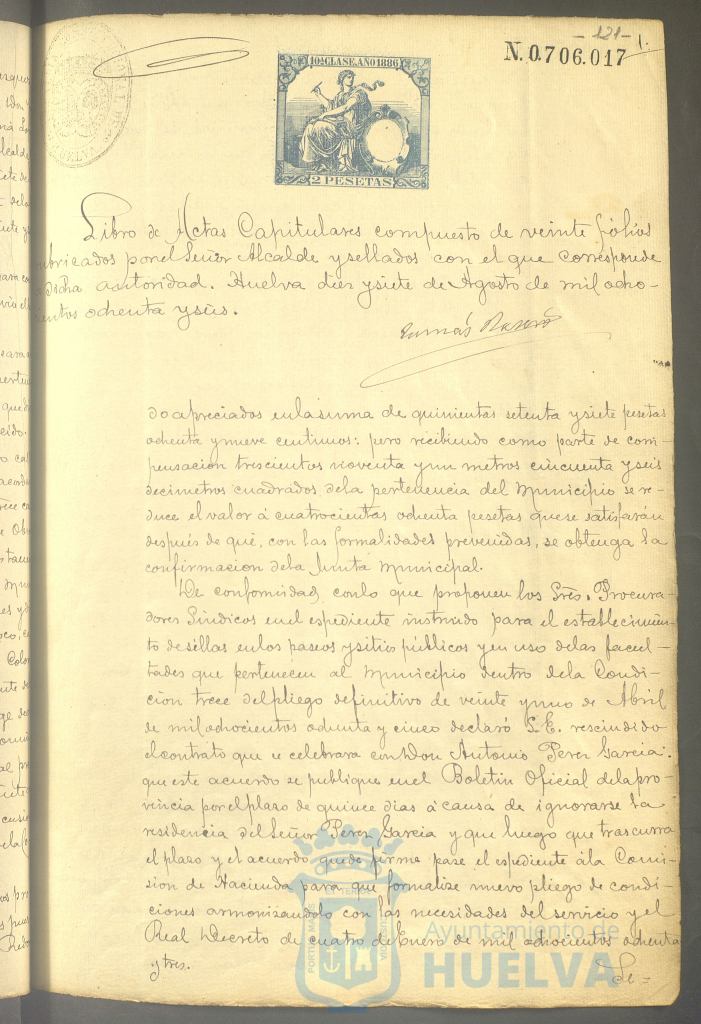 -121-
N.0.706.017 1.
10ª CLASE. AÑO 1886
2 PESETAS
Libro de Actas Capitulares compuesto de veinte fólios
ubricados por el Señor Alcalde y sellados con el que corresponde
dicha autoridad. Huelva diez y siete de Agosto de mil ocho-
cientos ochenta y seis.
Tomás
do apreciados en la suma de quinientas setenta y siete pesetas
ochenta y nueve centimos: pero recibiendo como parte de com-
pensacion trescientos noventa y un metros cincuenta y seis
decimetros cuadrados de la pertenencia del Municipio se re-
duce el valor á cuatrocientas ochenta pesetas que se satisfarán
después de que, con las formalidades prevenidas, se obtenga la
confirmacion de la Junta Municipal.
De conformidad con lo que proponen los Sres. Procura-
dores Sindicos en el espediente instruido para el establecimien-
to de sillas en los paseos y sitios públicos y en uso de las facul-
tades que pertenecen al Municipio dentro de la Condi-
cion trece del pliego definitivo de veinte y uno de Abril
de mil ochocientos ochenta y cinco declaró S.E. rescindido
el contrato que se celebrara con Don Antonio Perez Garcia:
que este acuerdo se publique en el Boletin Oficial de la pro-
vincia por el plazo de quince dias á causa de ignorarse la
residencia del Señor Perez Garcia y que luego que trascurra
el plazo y el acuerdo quede firme pase el espediente á la Comi-
sion de Hacienda para que formalize nuevo pliego de condi-
ciones armonizandolo con las necesidades del servicio y el
Real Decreto de cuatro de Enero de mil ochocientos ochenta
y tres.
Se-
Ayuntamiento de
HUELVA